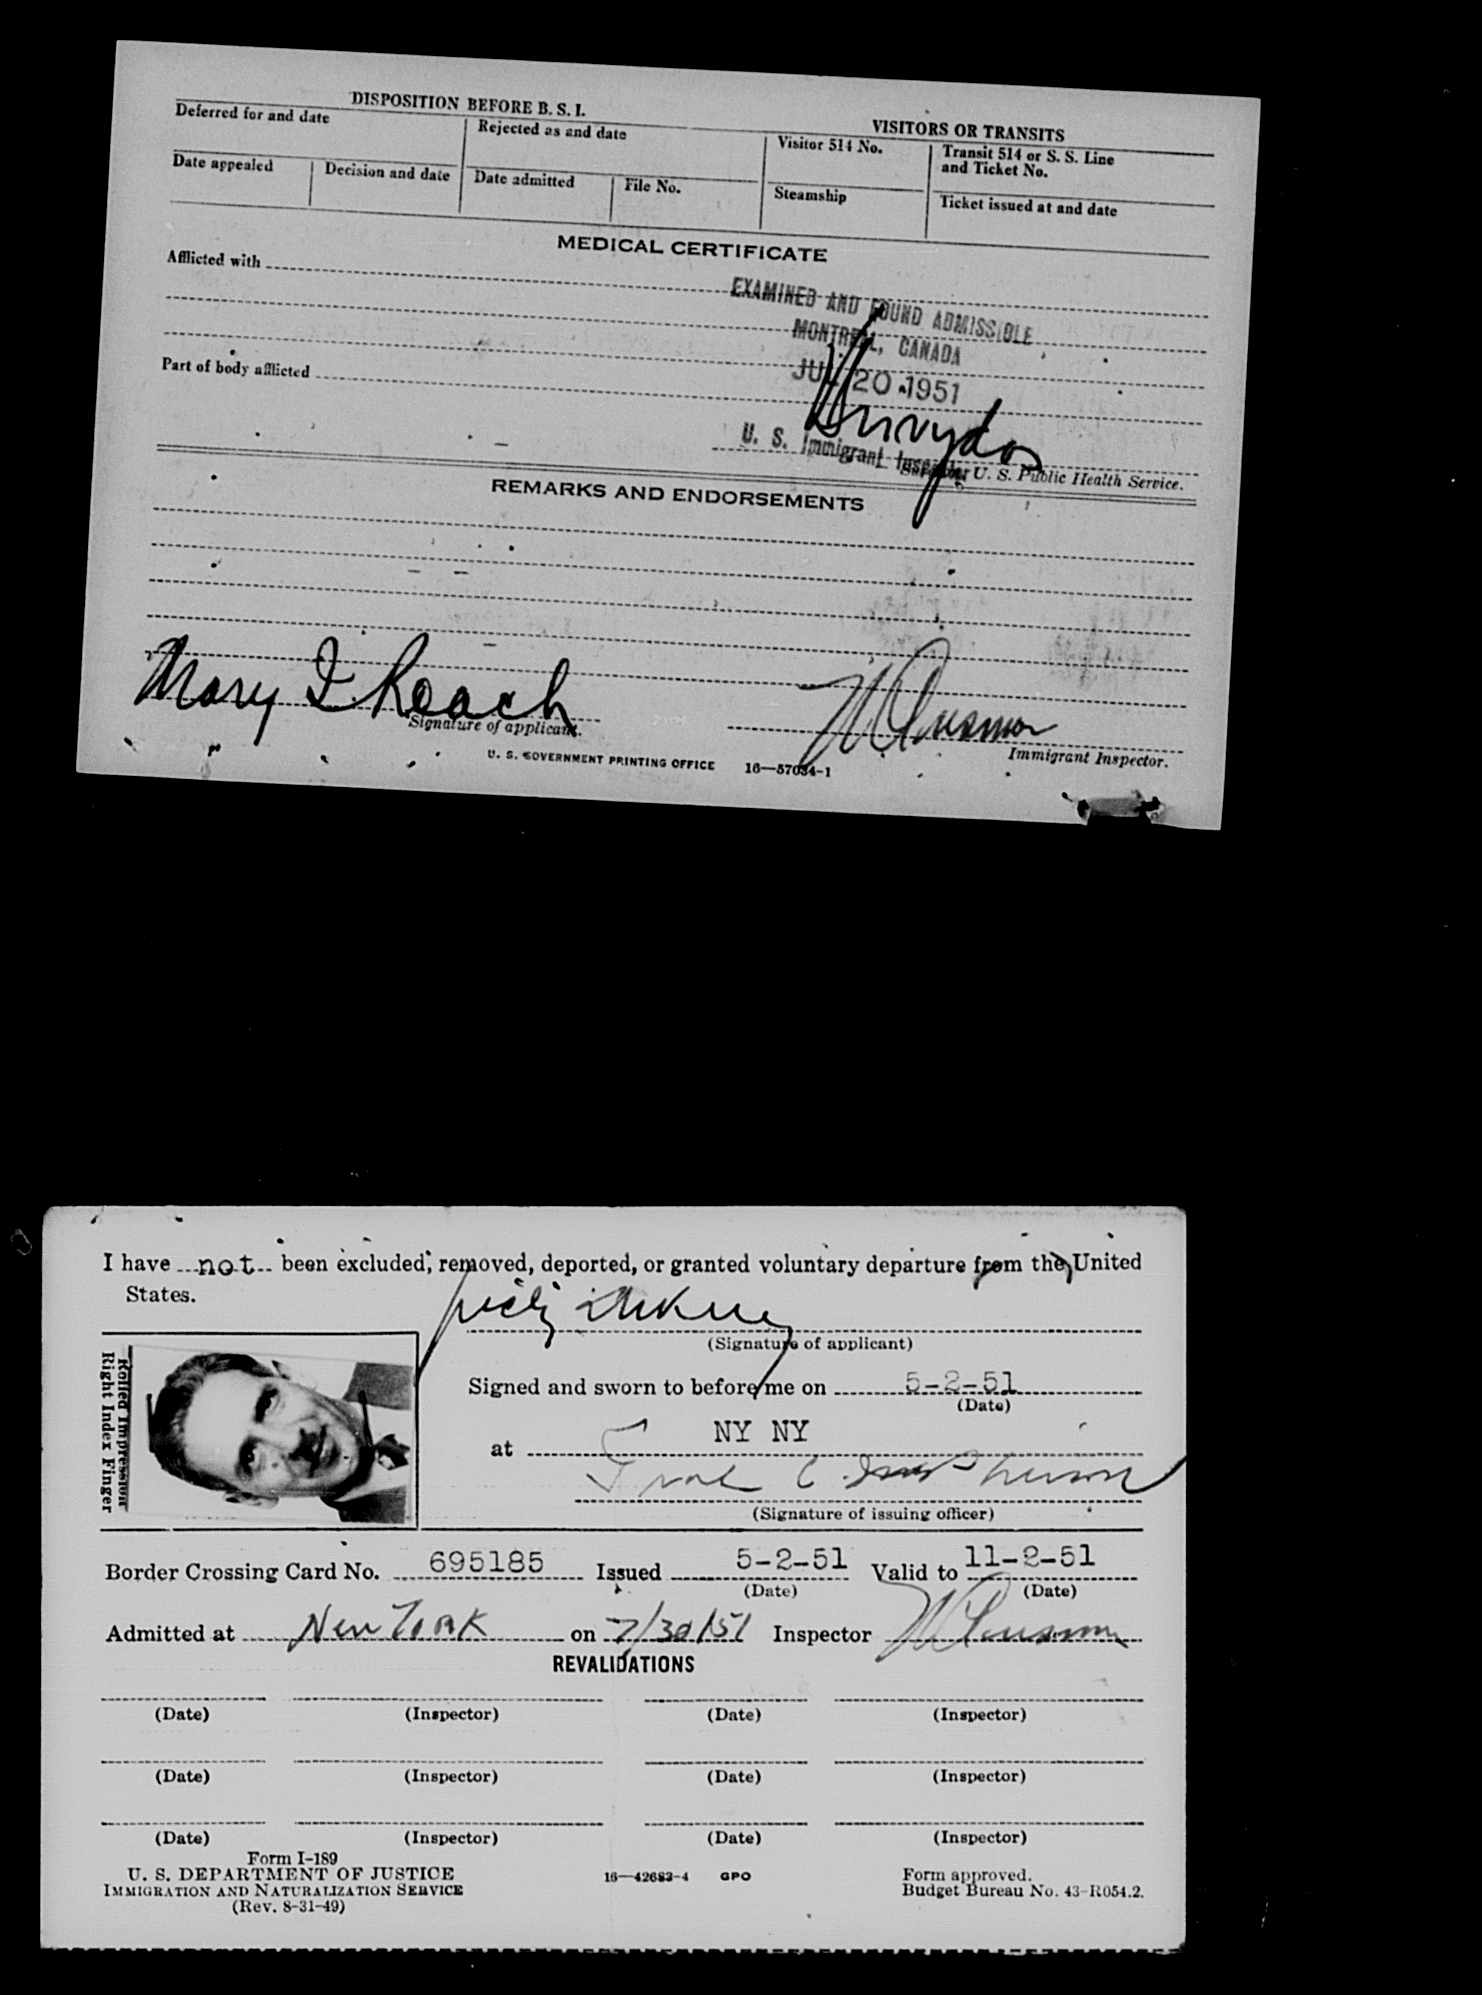 DISPOSITION BEFORE B. S. I.
VISITORS OR TRANSITS
Deferred for and date
Rejected as and date
Visitor 514 No.
Transit 514 or S. S. Line
and Ticket No.
Date appealed
Decision and date
Date admitted
File No.
Steamship
Ticket issued at and date
MEDICAL CERTIFICATE
Afflicted with
EXAMINED AND FOUND ADMISSIBLE
MONTREAL, CANADA
JUL 20 1951
Part of body afflicted
U. S. Immigrant Inspector
U. S. Public Health Service.
REMARKS AND ENDORSEMENTS
Mary I Roach
Signature of applicant.
Immigrant Inspector.
U. S. GOVERNMENT PRINTING OFFICE 16—57034-1
I have not been excluded, removed, deported, or granted voluntary departure from the United
States.
(Signature of applicant)
Rolled Impression
Right Index Finger
Signed and sworn to before me on 5-2-51
(Date)
at NY NY
(Signature of issuing officer)
Border Crossing Card No. 695185 Issued 5-2-51 Valid to 11-2-51
(Date) (Date)
Admitted at New York on 7/30/51 Inspector
REVALIDATIONS
(Date) (Inspector) (Date) (Inspector)
(Date) (Inspector) (Date) (Inspector)
(Date) (Inspector) (Date) (Inspector)
Form I-189
U. S. DEPARTMENT OF JUSTICE
IMMIGRATION AND NATURALIZATION SERVICE
(Rev. 8-31-49)
16—42683-4 GPO
Form approved.
Budget Bureau No. 43-R054.2.